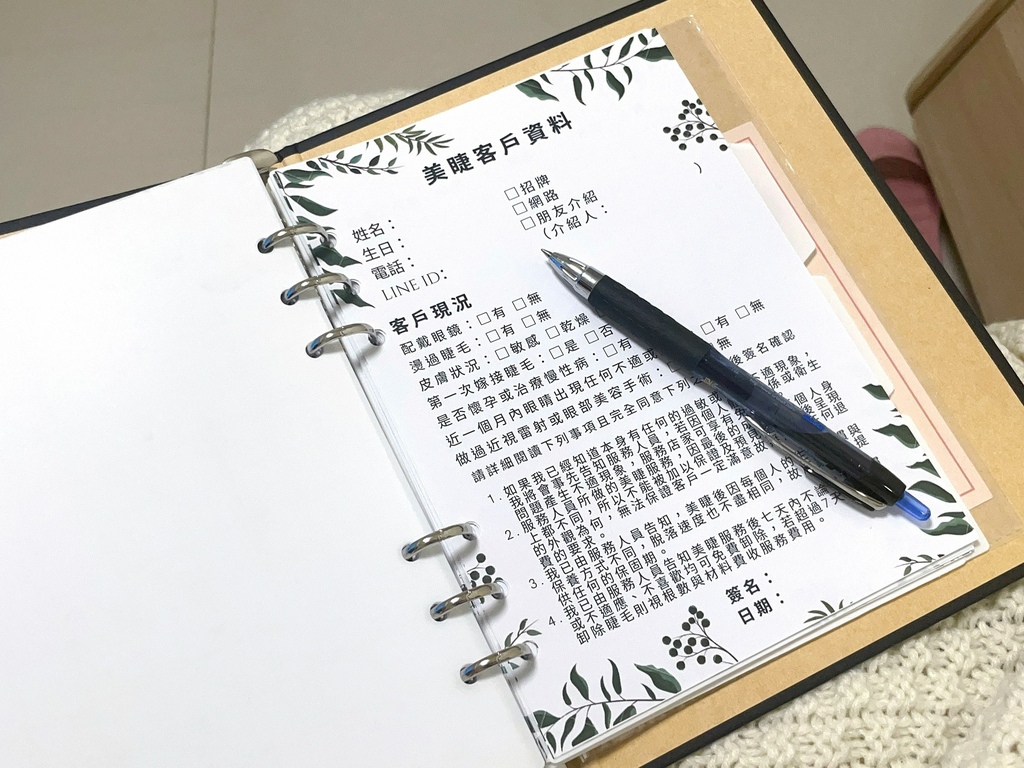 美睫客戶資料
姓名：
生日：
電話：
LINE ID：
□招牌
□網路
□朋友介紹
(介紹人：
)
客戶現況
配戴眼鏡：□有 □無
燙過睫毛：□有 □無
皮膚狀況：□敏感 □乾燥
第一次嫁接睫毛：□是 □否
是否懷孕或治療慢性病：□有
近一個月內眼睛出現任何不適或 □有 □無
做過近視雷射或眼部美容手術： 無
請詳細閱讀下列事項且完全同意下列 後簽名確認
1. 如果我已經知道本身有任何的過敏或 適現象，
我將會事先告知服務人員，若因個人 係或衛生
問題產生不適現象，服務店家可享有免
2. 服務人員所做的美睫服務，因最後的 個人身
上都不同，所以不能被加以保證及預 後呈現
的外觀為何，無法保證客戶一定滿意故 任何退
費的要求。
3. 我已由服務人員告知，美睫後因每個人的 質與
保養方式不同，脫落速度也不盡相同，故 提
供任何的保固期。
4. 我已由服務人員告知美睫服務後七天內不論
或不適應、不喜歡均可免費卸除，若超過7天
卸除睫毛則視根數與材料費收服務費用。
簽名：
日期：